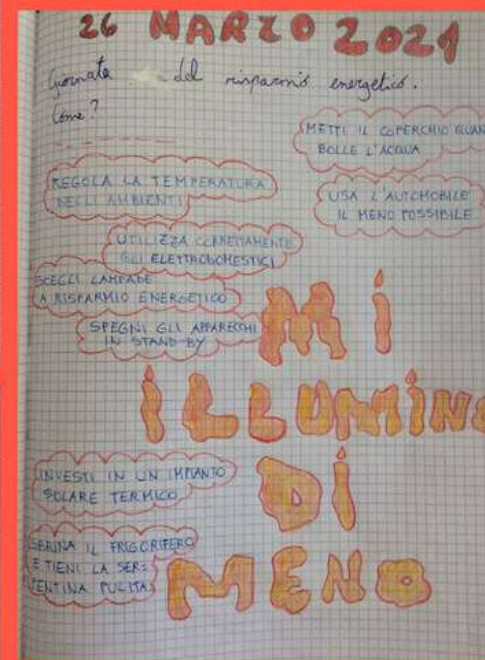 26 MARZO 2021
Giornata del risparmio energetico.
Come?
METTI IL COPERCHIO QUAN
BOLLE L'ACQUA
REGOLA LA TEMPERATURA
DEGLI AMBIENTI
USA L'AUTOMOBILE
IL MENO POSSIBILE
UTILIZZA CORRETTAMENTE
GLI ELETTRODOMESTICI
SCEGLI LAMPADE
A RISPARMIO ENERGETICO
SPEGNI GLI APPARECCHI
IN STAND-BY
Mi
iLLUMiNO
Di
MENO
INVESTI IN UN IMPIANTO
SOLARE TERMICO
SBRINA IL FRIGORIFERO
E TIENI LA SER=
PENTINA PULITA